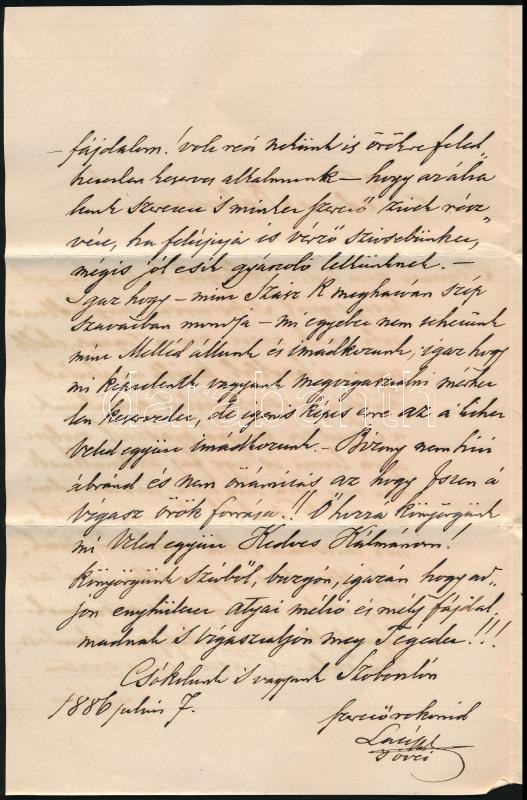 – fájdalom! volt reá nekünk is örökre feled
hetetlen keserves alkalmunk – hogy az álta
lunk szeretett s minket szerető szivek rész„
véte, ha felújitja is vérző szivsebünket,
mégis jól esik gyászoló lelkünknek. –
Igaz hogy – mint Szász K meghatóan szép
szavaiban mondja – mi egyebet nem tehetünk
mint Melléd állunk és imádkozunk, igaz hogy
mi képtelenek vagyunk megvigasztalni mérhet
len keserved, de igenis képes erre az a kihez
Veled együtt imádkozunk. – Bizony nem hiú
ábránd és nem önámitás az hogy Isten a
vigasz örök forrása!! Ő hozzá könyörgünk
mi Veled együtt Kedves Kálmánom!
Könyörgünk szivből, buzgón, igazán hogy ad„
jon enyhületet atyai méltó és mély fájdal
madnak s vigasztaljon meg Tégedet!!!
Csókolunk s vagyunk Szobonlón
1886 julius 7.
szerető rokonid
darabanth